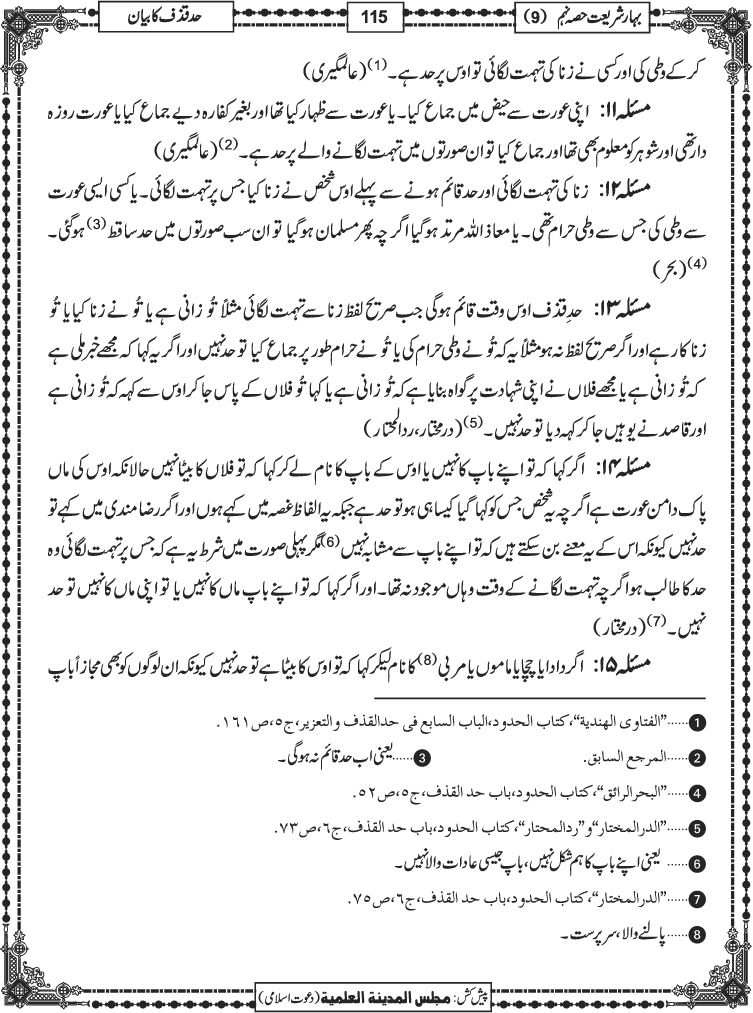 بہارِ شریعت حصہ نہم (9)
115
حد قذف کا بیان
کر کے وطی کی اور کسی نے زنا کی تہمت لگائی تو اوس پر حد ہے۔(1) (عالمگیری)
مسئلہ ۱۱: اپنی عورت سے حیض میں جماع کیا۔ یا عورت سے ظہار کیا تھا اور بغیر کفارہ دیے جماع کیا یا عورت روزہ
دار تھی اور شوہر کو معلوم بھی تھا اور جماع کیا تو ان صورتوں میں تہمت لگانے والے پر حد ہے۔(2) (عالمگیری)
مسئلہ ۱۲: زنا کی تہمت لگائی اور حد قائم ہونے سے پہلے اوس شخص نے زنا کیا جس پر تہمت لگائی۔ یا کسی ایسی عورت
سے وطی کی جس سے وطی حرام تھی۔ یا معاذ اللہ مرتد ہوگیا اگرچہ پھر مسلمان ہوگیا تو ان سب صورتوں میں حد ساقط (3) ہوگئی۔
(4) (بحر)
مسئلہ ۱۳: حدِ قذف اوس وقت قائم ہوگی جب صریح لفظ زنا سے تہمت لگائی مثلاً تُو زانی ہے یا تُو نے زنا کیا یا تُو
زنا کار ہے اور اگر صریح لفظ نہ ہو مثلاً یہ کہ تُو نے وطی حرام کی یا تُو نے حرام طور پر جماع کیا تو حد نہیں اور اگر یہ کہا کہ مجھے خبر ملی ہے
کہ تُو زانی ہے یا مجھے فلاں نے اپنی شہادت پر گواہ بنایا ہے کہ تُو زانی ہے یا کہا تُو فلاں کے پاس جا کر اوس سے کہہ کہ تُو زانی ہے
اور قاصد نے یوہیں جا کر کہہ دیا تو حد نہیں۔(5) (درمختار، ردالمحتار)
مسئلہ ۱۴: اگر کہا کہ تو اپنے باپ کا نہیں یا اوس کے باپ کا نام لے کر کہا کہ تو فلاں کا بیٹا نہیں حالانکہ اوس کی ماں
پاک دامن عورت ہے اگرچہ یہ شخص جس کو کہا گیا کیسا ہی ہو تو حد ہے جبکہ یہ الفاظ غصہ میں کہے ہوں اور اگر رضامندی میں کہے تو
حد نہیں کیونکہ اس کے یہ معنے بن سکتے ہیں کہ تو اپنے باپ سے مشابہ نہیں(6) مگر پہلی صورت میں شرط یہ ہے کہ جس پر تہمت لگائی وہ
حد کا طالب ہو اگرچہ تہمت لگانے کے وقت وہاں موجود نہ تھا۔ اور اگر کہا کہ تو اپنے باپ ماں کا نہیں یا تو اپنی ماں کا نہیں تو حد
نہیں۔(7) (درمختار)
مسئلہ ۱۵: اگر دادا یا چچا یا ماموں یا مربی (8) کا نام لیکر کہا کہ تو اوس کا بیٹا ہے تو حد نہیں کیونکہ ان لوگوں کو بھی مجازاً باپ
1 ......"الفتاوی الهندیة"، کتاب الحدود، الباب السابع فی حدالقذف و التعزیر، ج٥، ص١٦١.
2 ......المرجع السابق. 3 ......یعنی اب حد قائم نہ ہوگی۔
4 ......"البحرالرائق"، کتاب الحدود، باب حد القذف، ج٥، ص٥٢.
5 ......"الدرالمختار" و "ردالمحتار"، کتاب الحدود، باب حد القذف، ج٦، ص٧٣.
6 ......یعنی اپنے باپ کا ہم شکل نہیں، باپ جیسی عادات والا نہیں۔
7 ......"الدرالمختار"، کتاب الحدود، باب حد القذف، ج٦، ص٧٥.
8 ......پالنے والا، سرپرست۔
پیش کش: مجلس المدینة العلمیة (دعوت اسلامی)